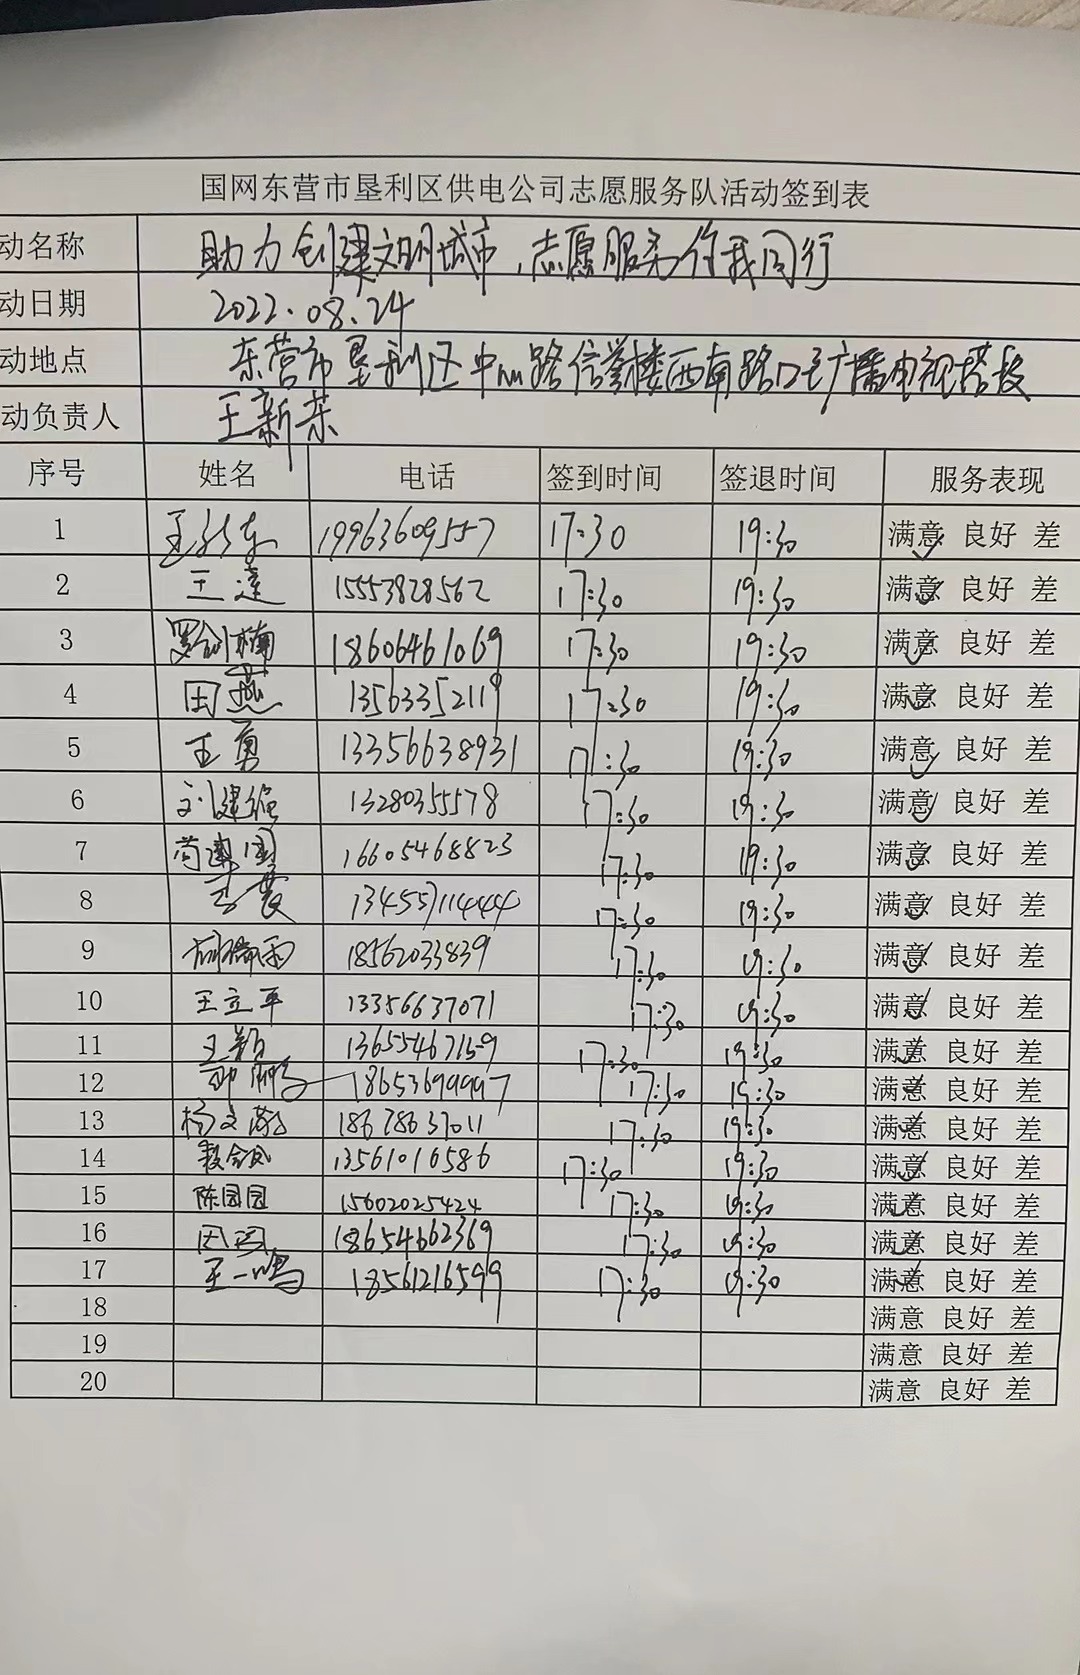 国网东营市垦利区供电公司志愿服务队活动签到表
动名称 助力创建文明城市，志愿服务你我同行
动日期 2022.08.24
动地点 东营市垦利区中心路信誉楼西南路口至广播电视塔段
动负责人 王新荣
序号 姓名 电话 签到时间 签退时间 服务表现
1 19963609557 17:30 19:30 满意 良好 差
2 王达 15553828562 17:30 19:30 满意 良好 差
3 罗剑楠 18606461069 17:30 19:30 满意 良好 差
4 田燕 13563352119 17:30 19:30 满意 良好 差
5 王勇 13356638931 17:30 19:30 满意 良好 差
6 刘建强 13280355578 17:30 19:30 满意 良好 差
7 苟建国 16605468823 17:30 19:30 满意 良好 差
8 13455711444 17:30 19:30 满意 良好 差
9 18562033839 17:30 19:30 满意 良好 差
10 王立平 13356637071 17:30 19:30 满意 良好 差
11 王颖 13655467159 17:30 19:30 满意 良好 差
12 18653699997 17:30 19:30 满意 良好 差
13 18678637011 17:30 19:30 满意 良好 差
14 13561016586 17:30 19:30 满意 良好 差
15 陈园园 15602025424 17:30 19:30 满意 良好 差
16 18654662369 17:30 19:30 满意 良好 差
17 王一鸣 18561216599 17:30 19:30 满意 良好 差
18 满意 良好 差
19 满意 良好 差
20 满意 良好 差